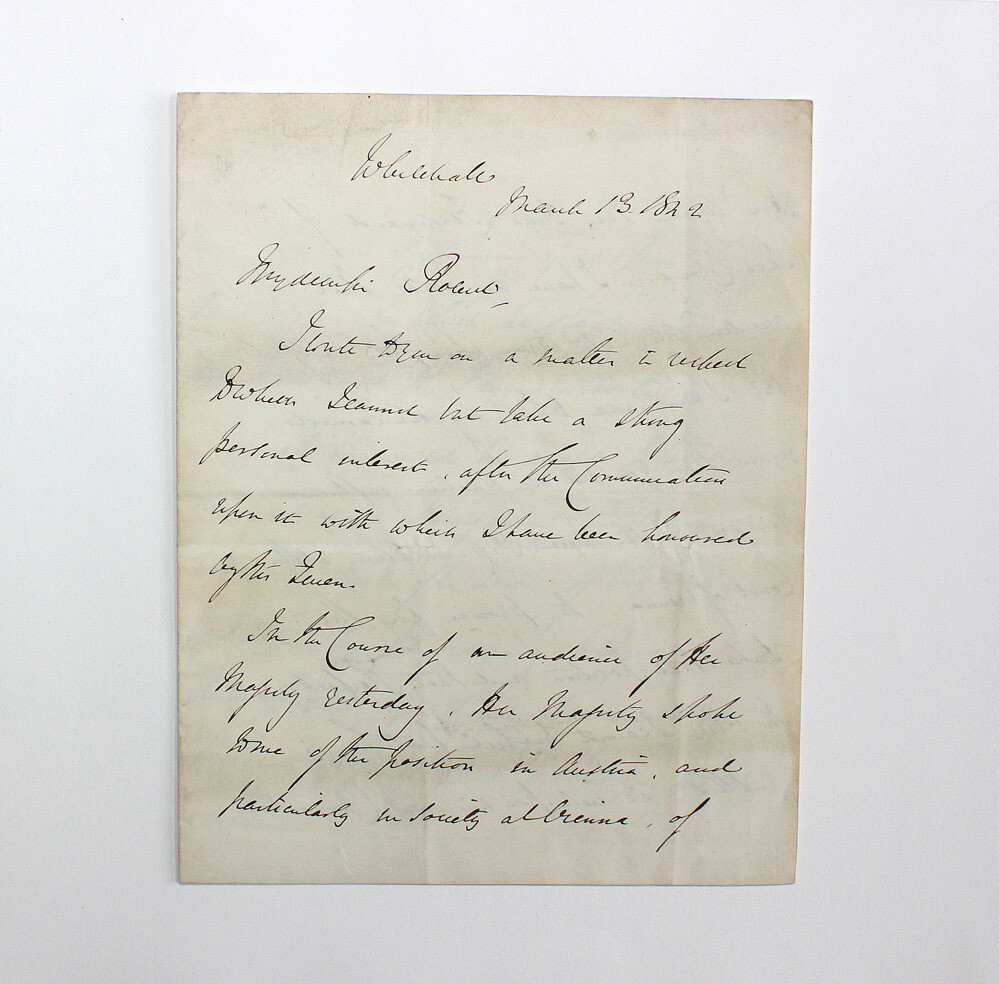 Whitehall
March 13. 1842
My dear Sir Robert,
I write to you on a matter in respect
to which I cannot but take a strong
personal interest, after the Communication
upon it with which I have been honoured
by the Queen.
In the Course of an audience of Her
Majesty yesterday, Her Majesty spoke
to me of the position in Austria, and
particularly in Society at Vienna, of